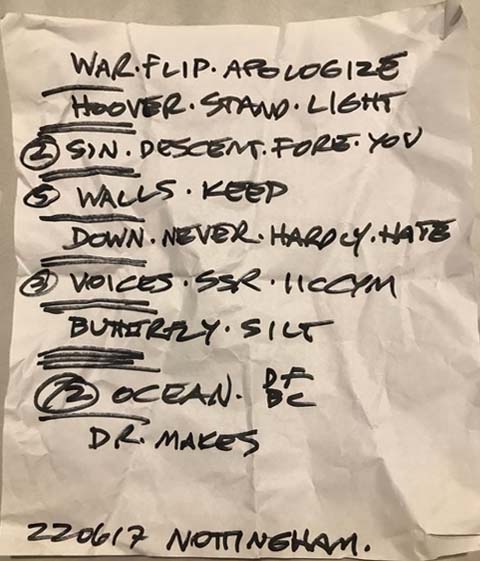 WAR. FLIP. APOLOGIZE
HOOVER. STAND. LIGHT
② SIN. DESCENT. FORE. YOU
⑤ WALLS. KEEP
DOWN. NEVER. HARDLY. HATE
③ VOICES. SSR. IICCYM
BUTTRFLY. SILT
12 OCEAN. DF
BC
DR. MAKES
220617 NOTTINGHAM.